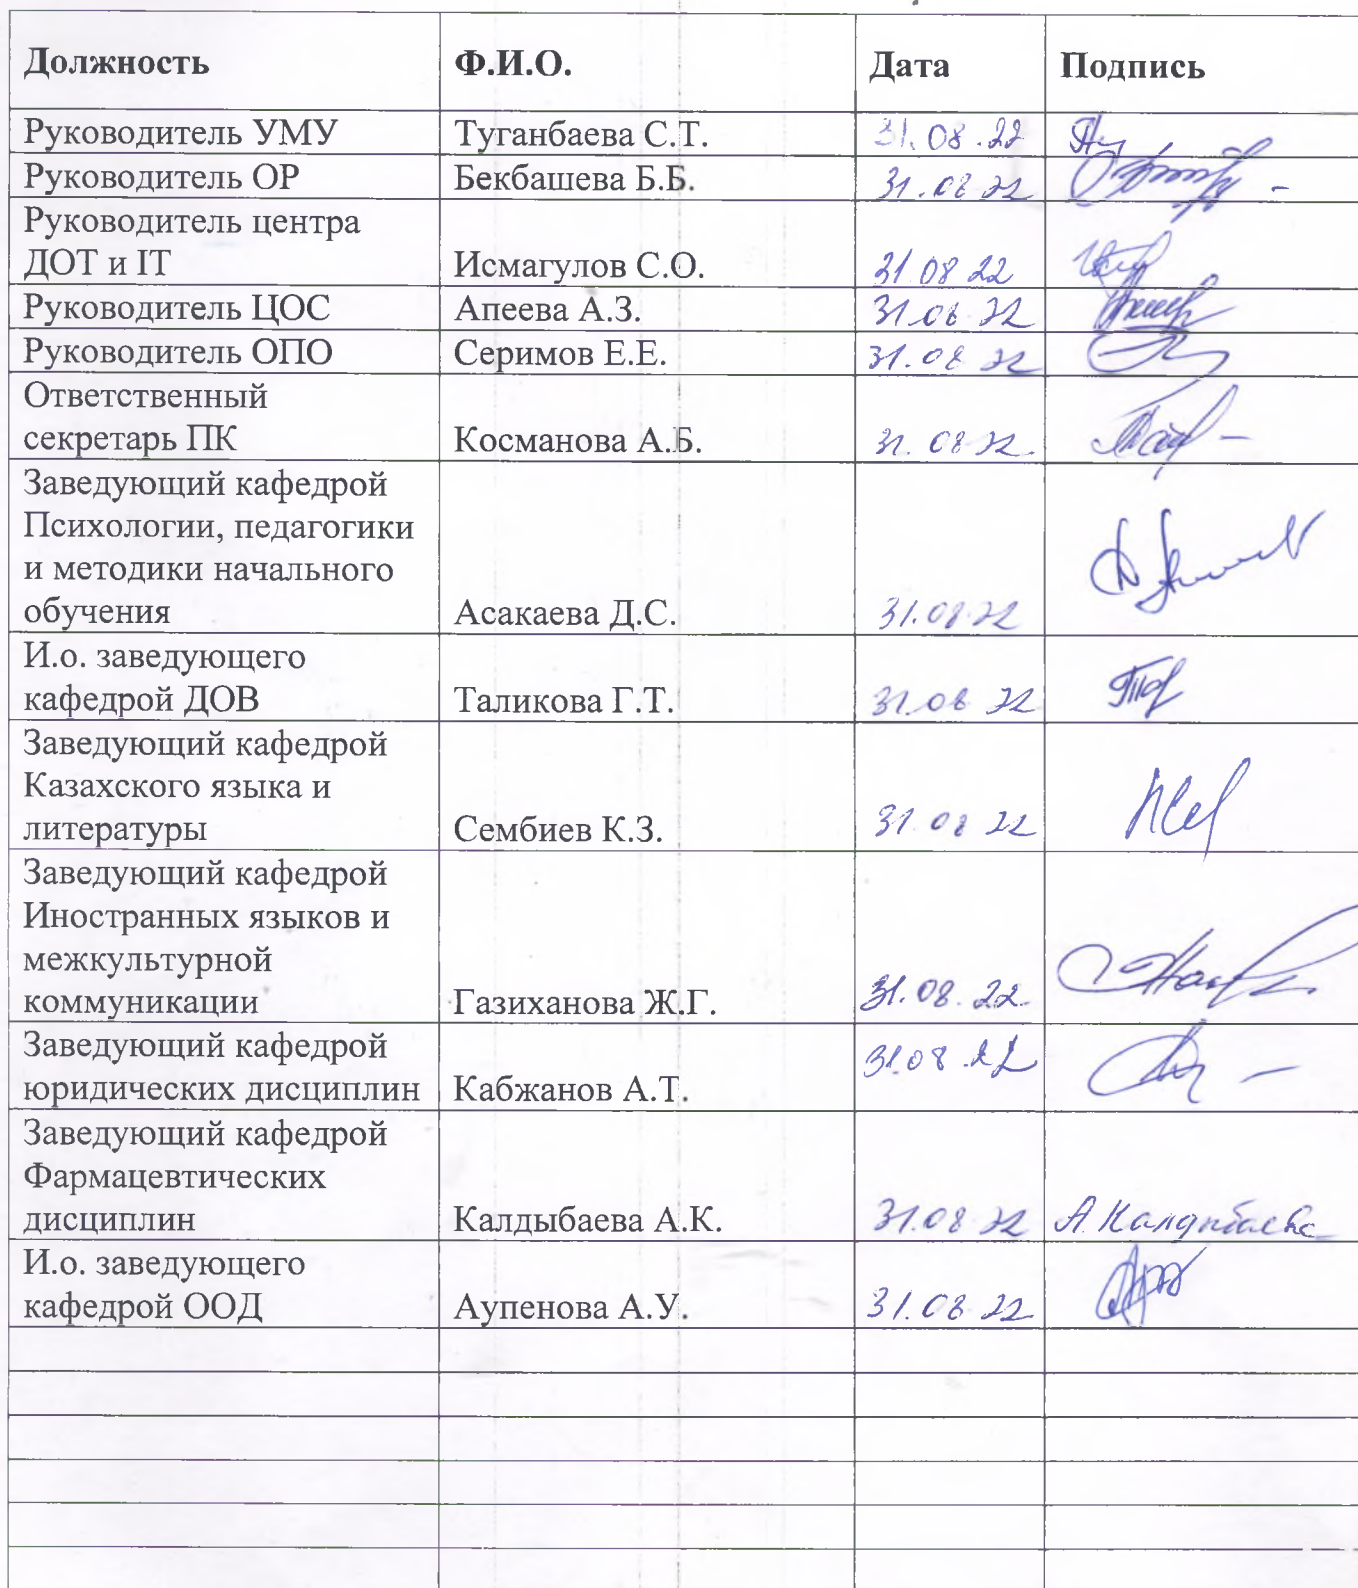 Должность Ф.И.О. Дата Подпись
Руководитель УМУ Туганбаева С.Т. 31.08.22
Руководитель ОР Бекбашева Б.Б. 31.08 22
Руководитель центра
ДОТ и IT Исмагулов С.О. 31 08 22
Руководитель ЦОС Апеева А.З. 31.08 22
Руководитель ОПО Серимов Е.Е. 31.08 22
Ответственный
секретарь ПК Косманова А.Б. 31.08 22.
Заведующий кафедрой
Психологии, педагогики
и методики начального
обучения Асакаева Д.С. 31.08.22
И.о. заведующего
кафедрой ДОВ Таликова Г.Т. 31.08 22
Заведующий кафедрой
Казахского языка и
литературы Сембиев К.З. 31 08 22
Заведующий кафедрой
Иностранных языков и
межкультурной
коммуникации Газиханова Ж.Г. 31.08.22.
Заведующий кафедрой
юридических дисциплин Кабжанов А.Т. 31.08.22
Заведующий кафедрой
Фармацевтических
дисциплин Калдыбаева А.К. 31.08 22 А.Калдыбаева
И.о. заведующего
кафедрой ООД Аупенова А.У. 31.08 22